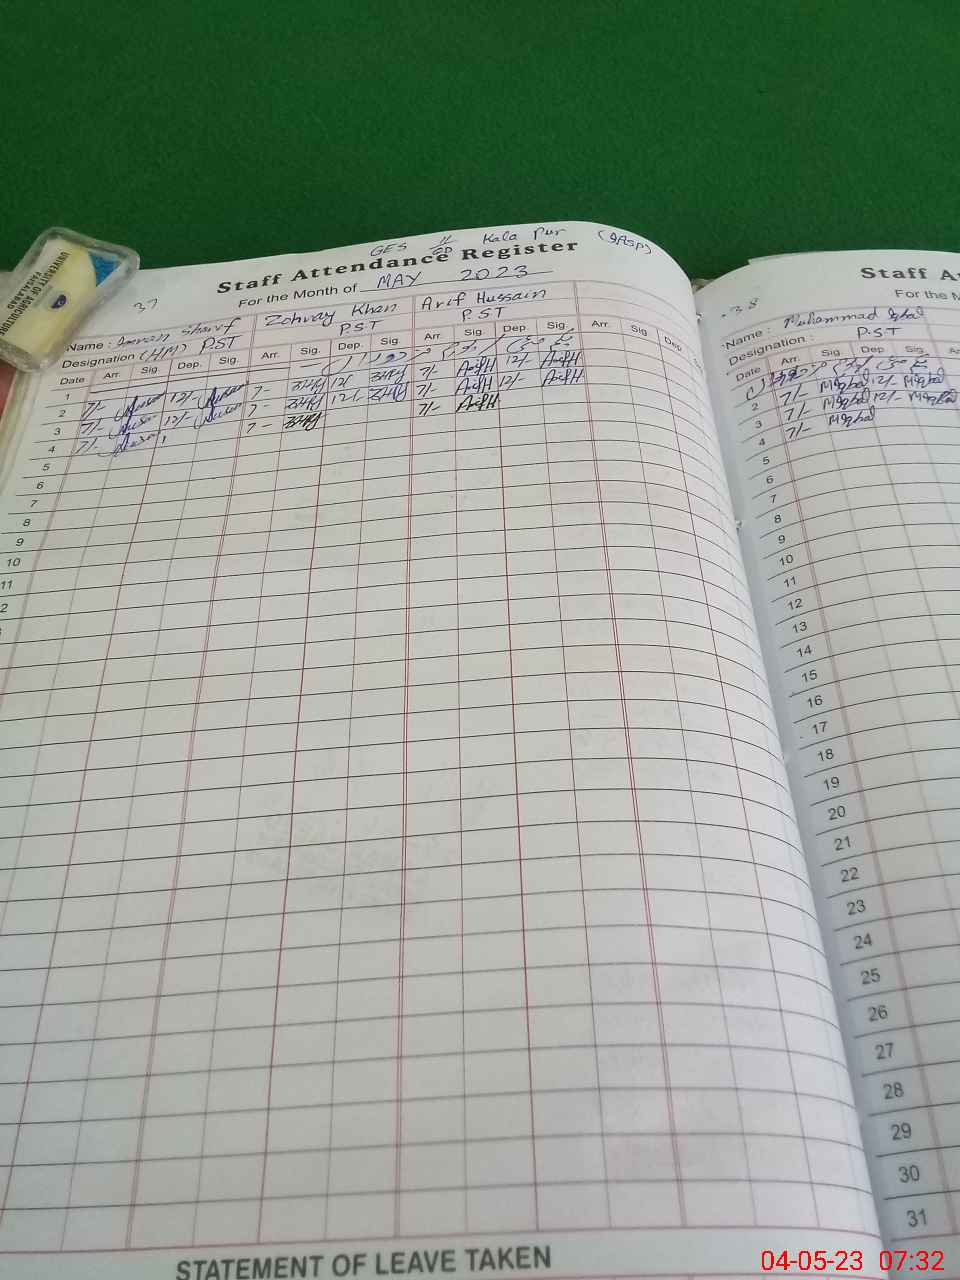 GES 11/GD Kala Pur (SASP)
Staff Attendance Register
For the Month of MAY 2023
37
Name : Sharif Zohray Khan Arif Hussain
Designation (HM) PST P.S.T P.S.T
Date Arr. Sig. Dep. Sig. Arr. Sig. Dep. Sig. Arr. Sig. Dep. Sig. Arr. Sig. Dep.
1
2 7/- 12/- 7- 12/- 7/- ArifH 12/- ArifH
3 7/- 12/- 7- 12/- 7/- ArifH 12/- ArifH
4 7/- 7- 7/- ArifH
5
6
7
8
9
10
11
2
STATEMENT OF LEAVE TAKEN
UNIVERSITY OF AGRICULTURE
FAISALABAD
38
Staff A
For the M
Name : Muhammad Iqbal
Designation : P.S.T
Date Arr. Sig. Dep. Sig. Arr.
2 7/- MIqbal 12/- MIqbal
3 7/- MIqbal 12/- MIqbal
4 7/- MIqbal
5
6
7
8
9
10
11
12
13
14
15
16
17
18
19
20
21
22
23
24
25
26
27
28
29
30
31
04-05-23 07:32